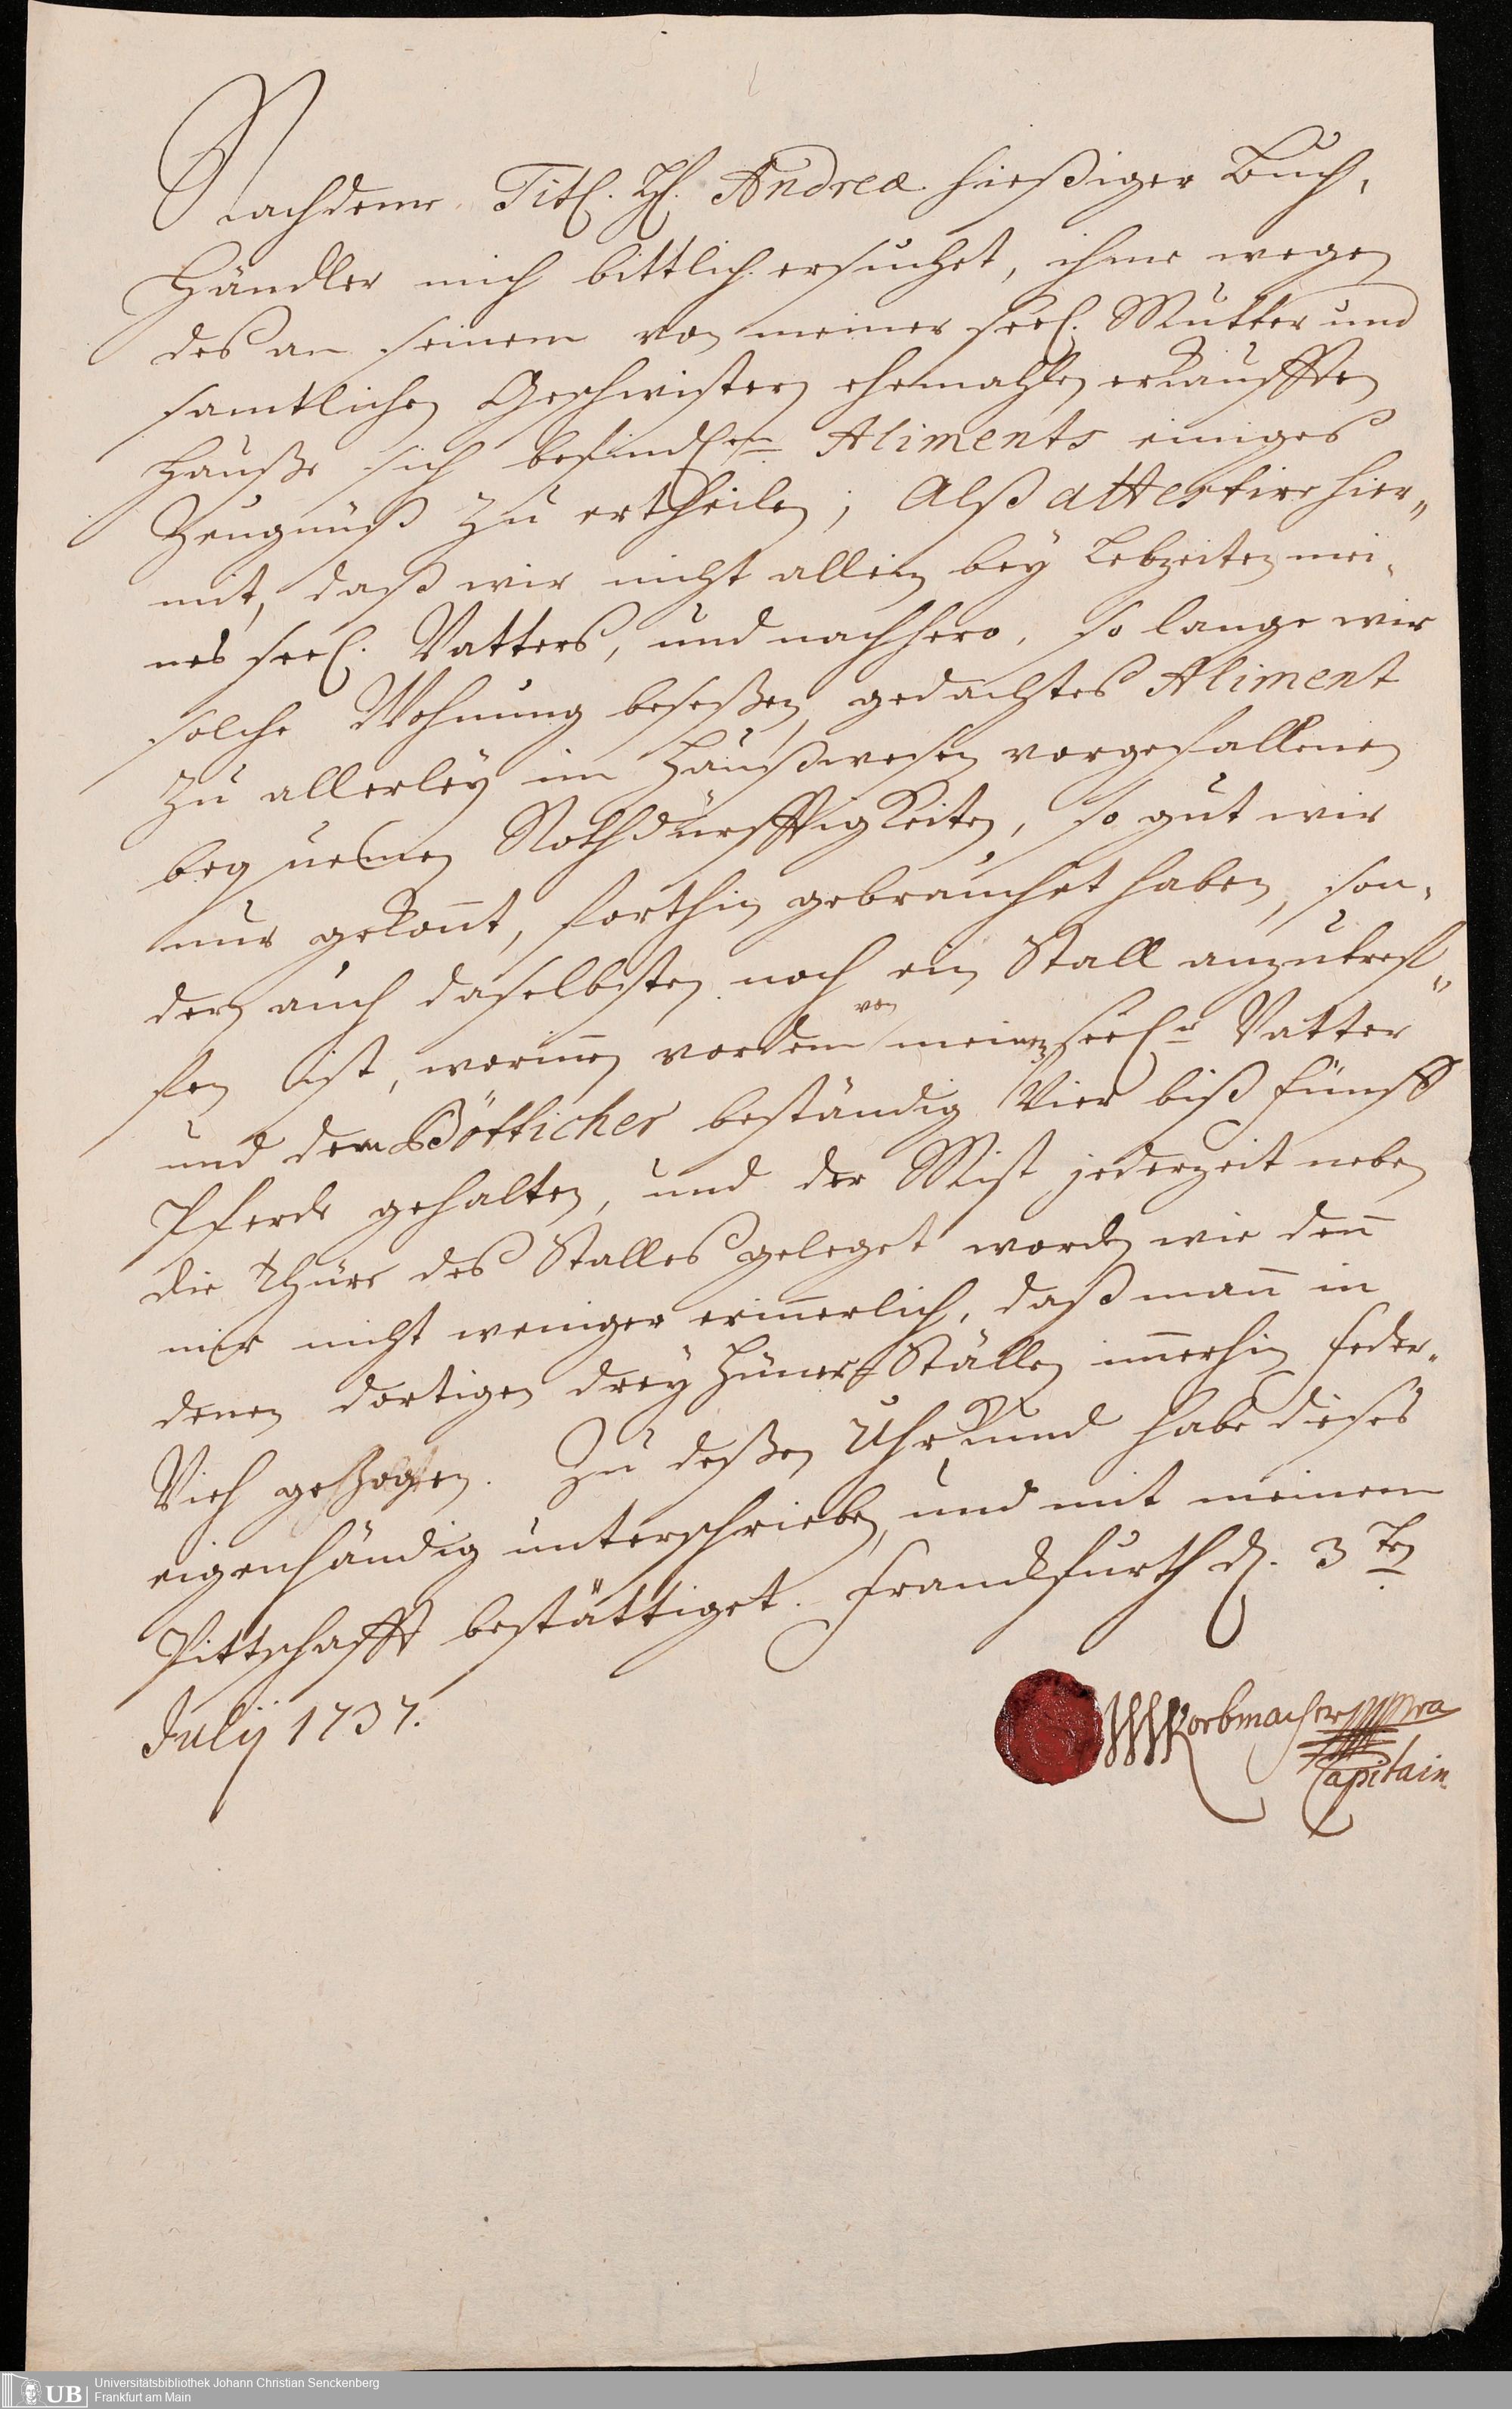 Nachdeme Titl. H. Andreæ hießiger Buch,
Händler mich bittlich ersuchet, ihme wegen
des an seinem von meiner seel. Mutter und
samtlichen Geschwistern ehemahlen erkaufften
Hauße sich befindlen Aliments einiges
Zeugnüß zu ertheilen; Alß attestire hier„
mit, daß wir nicht allein bey Lebzeiten mei„
nes seel. Vatters, und nachhero, so lange wir
solche Wohnung beseßen, gedachtes Aliment
zu allerley im Haußwesen vorgefallenen
bequemen Nothdürfftigkeiten, so gut wir
nur gekont, forthin gebrauchet haben, son„
dern auch daselbsten noch ein Stall anzutref„
fen ist, worinen vordem von meinen seelr Vatter
und dem Bötticher beständig Vier biß fünff
Pferde gehalten, und der Mist jederzeit neben
die thüre des Stalles geleget worden wie den
mir nicht weniger erinerlich, daß man in
denen dortigen drey Hüner Ställen imerhin feder„
Vieh gezogen. Zu deßen Uhrkund habe dieses
eigenhändig unterschrieben, und mit meinem
Pittschafft bestättiget. Franckfurth d. 3ten
Julij 1737.
Korbmacher
Capitain
Universitätsbibliothek Johann Christian Senckenberg
Frankfurt am Main
UB